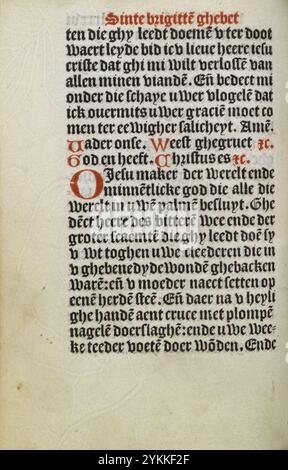 Sinte brigittē ghebet
ten die ghy leedt doemē v ter doot
waert leyde bid ic v lieue heere iesu
criste dat ghi mi wilt verlossen van
allen minen viandē. Eñ bedect mi
onder die schaye uwer vlogelē dat
ick ouermits uwer graciē moet co
men ter eewigher salicheyt. Amē.
Vader onse. Weest ghegruet ⁊c.
God en heeft. Christus es ⁊c.
O Iesu maker der werelt ende
minnētlicke god die alle die
werelt in uwē palmē besluyt. Ghe
dēct heere des bitterē wee ende der
groter scaemtē die ghy leedt doē sy
v wt toghen uwe cleederen die in
v ghebenedyde wondē ghebacken
warē: eñ v moeder naect setten op
eenē herdē stēē. Eñ daer na v heyli
ghe handē aent cruce met plompē
nagelē doerslaghē: ende uwe wee-
ke teeder voetē doer wōden. Ende
alamy
Image ID: 2YKKF2F
www.alamy.com